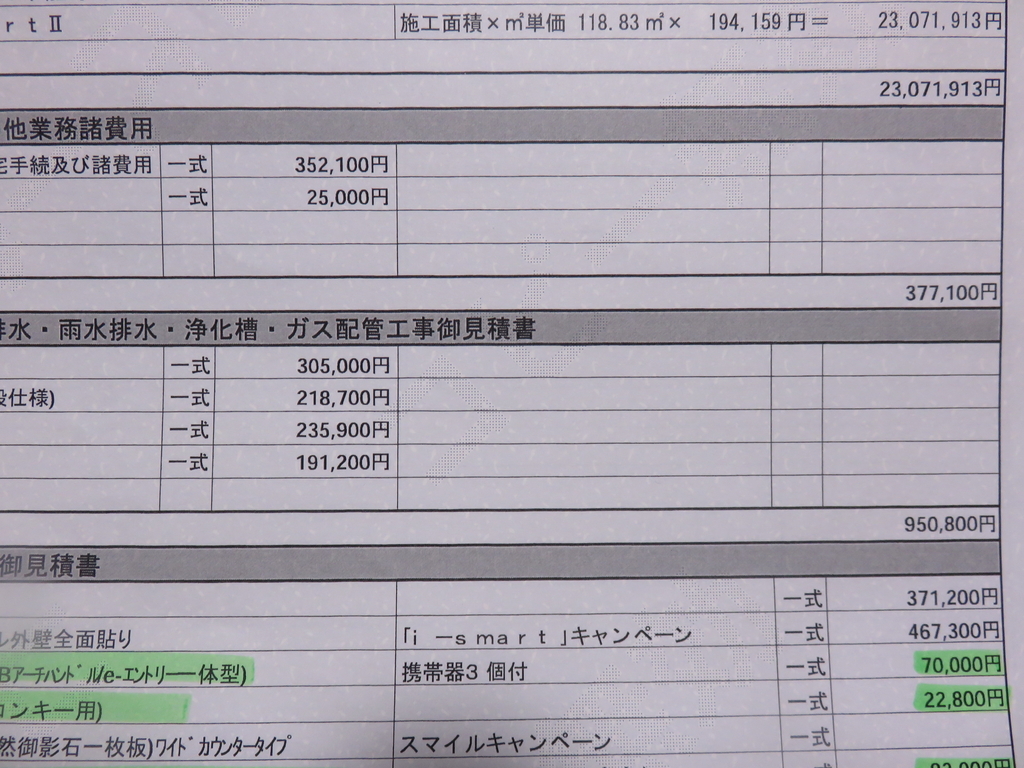 ｒｔⅡ 施工面積×㎡単価 118.83㎡× 194,159円＝ 23,071,913円
23,071,913円
他業務諸費用
宅手続及び諸費用 一式 352,100円
一式 25,000円
377,100円
排水・雨水排水・浄化槽・ガス配管工事御見積書
一式 305,000円
仕様) 一式 218,700円
一式 235,900円
一式 191,200円
950,800円
御見積書
一式 371,200円
ル外壁全面貼り 「ｉ－ｓｍａｒｔ」キャンペーン 一式 467,300円
Bｱｰﾁﾊﾝﾄﾞﾙ/e-ｴﾝﾄﾘｰ一体型) 携帯器3 個付 一式 70,000円
ンキー用) 一式 22,800円
然御影石一枚板)ﾜｲﾄﾞｶｳﾝﾀｰﾀｲﾌﾟ スマイルキャンペーン 一式